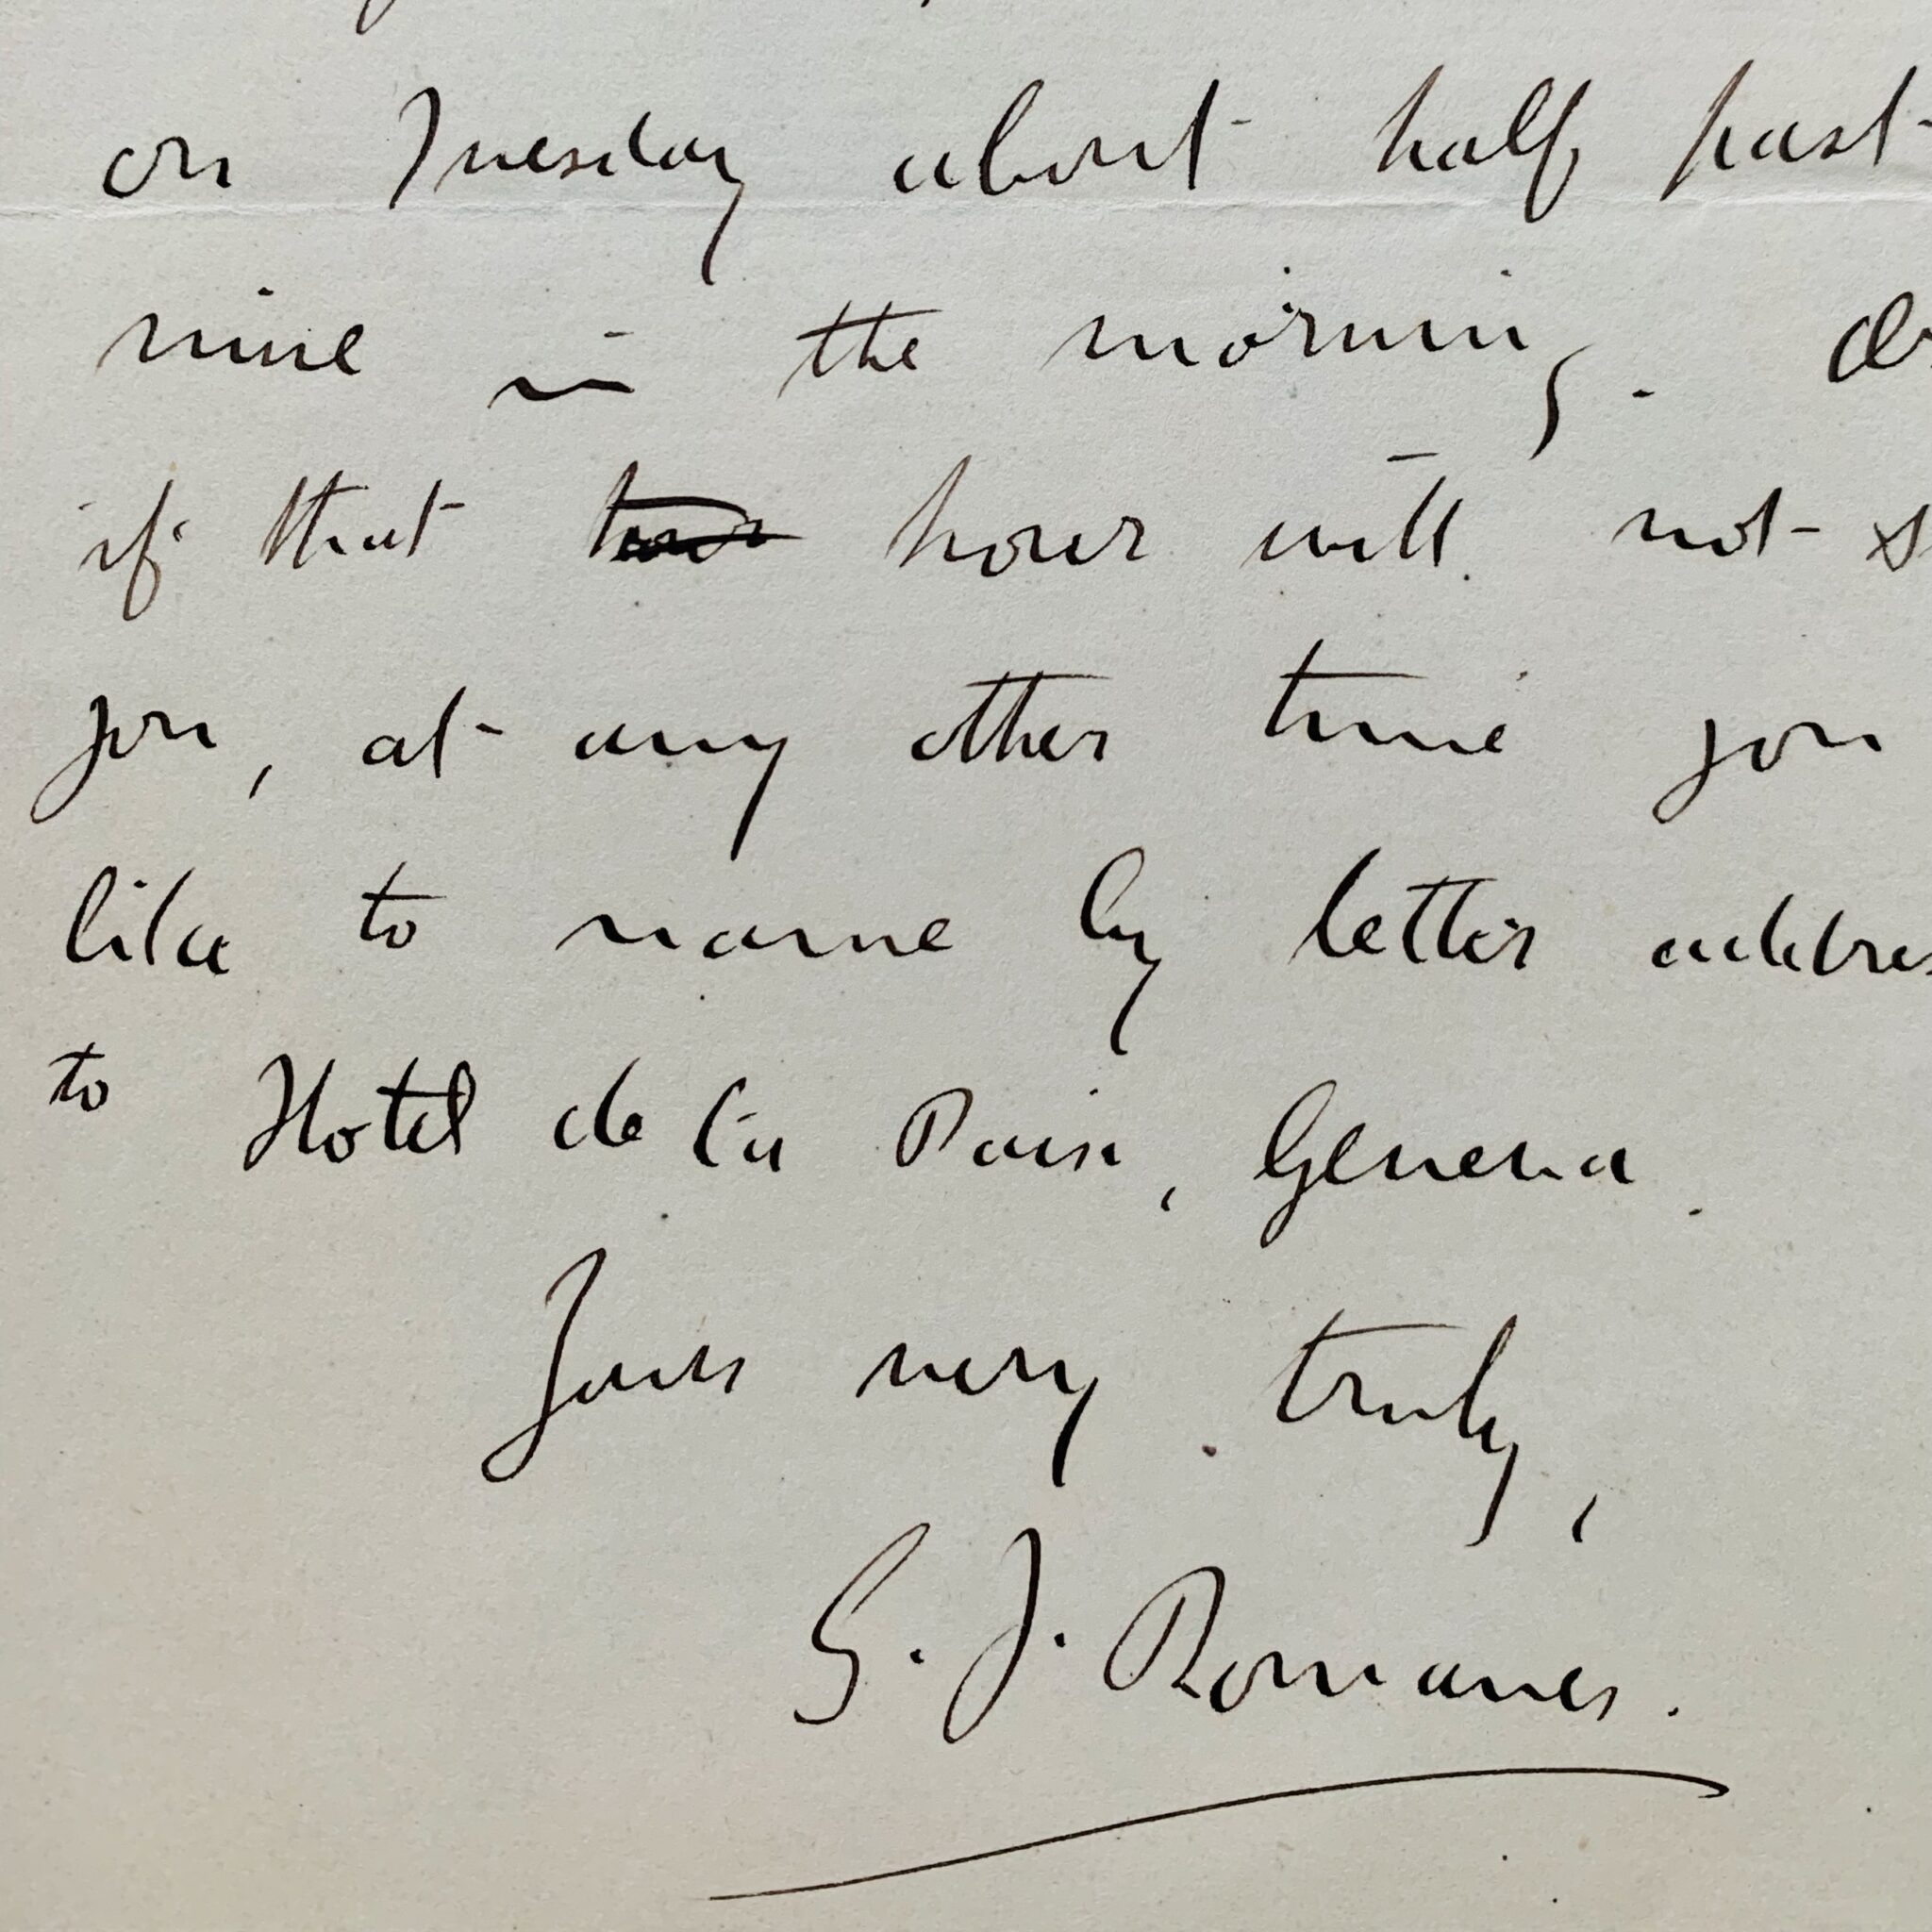 on Tuesday about half past
nine in the morning. Or
if that hour will not s
you, at any other time you
like to name by letter addres
to Hotel de la Paix, Geneva.
Yours very truly,
G. J. Romanes.